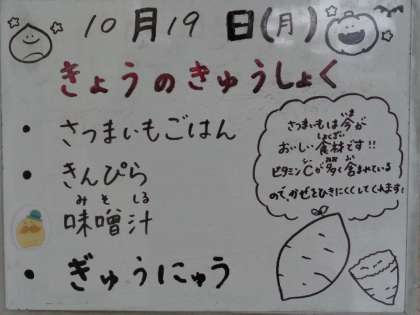 10月19日(月)
きょうのきゅうしょく
・さつまいもごはん
・きんぴら
みそしる
味噌汁
・ぎゅうにゅう
いま
さつまいもは今が
しょくざい
おいしい食材です!!
おお ふく
ビタミンCが多く含まれている
ので、かぜをひきにくくしてくれます!